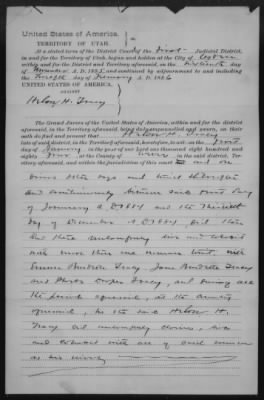 United States of America.
TERRITORY OF UTAH.
At a stated term of the District Court of the First Judicial District,
in and for the Territory of Utah, begun and holden at the City of Ogden
within and for the District and Territory aforesaid, on the day
of November A. D. 1885 and continued by adjournment to and including
the Twelfth day of January A. D. 1886
UNITED STATES OF AMERICA,
against
H. Tracy
The Grand Jurors of the United States of America, within and for the district
aforesaid, in the Territory aforesaid, being duly empanelled and sworn, on their
oaths do find and present that H. Tracy
late of said district, in the Territory aforesaid, heretofore, to wit: on the first
day of January in the year of our Lord one thousand eight hundred and
eighty four at the County of Weber in the said district, Territory
aforesaid, and within the jurisdiction of this court and on
other days and times thereafter
and continuously between said first day
of January A D 1884 and the Thirtieth
day of December A D 1884 did then
and there unlawfully live and cohabit
with more than one woman to wit, with
Emma Burdette Tracy, Jane Burdette Tracy
and Tracy, and during all
the period aforesaid, at the County
aforesaid, he the said H.
Tracy did unlawfully claim, live
and cohabit with all of said women
as his wives